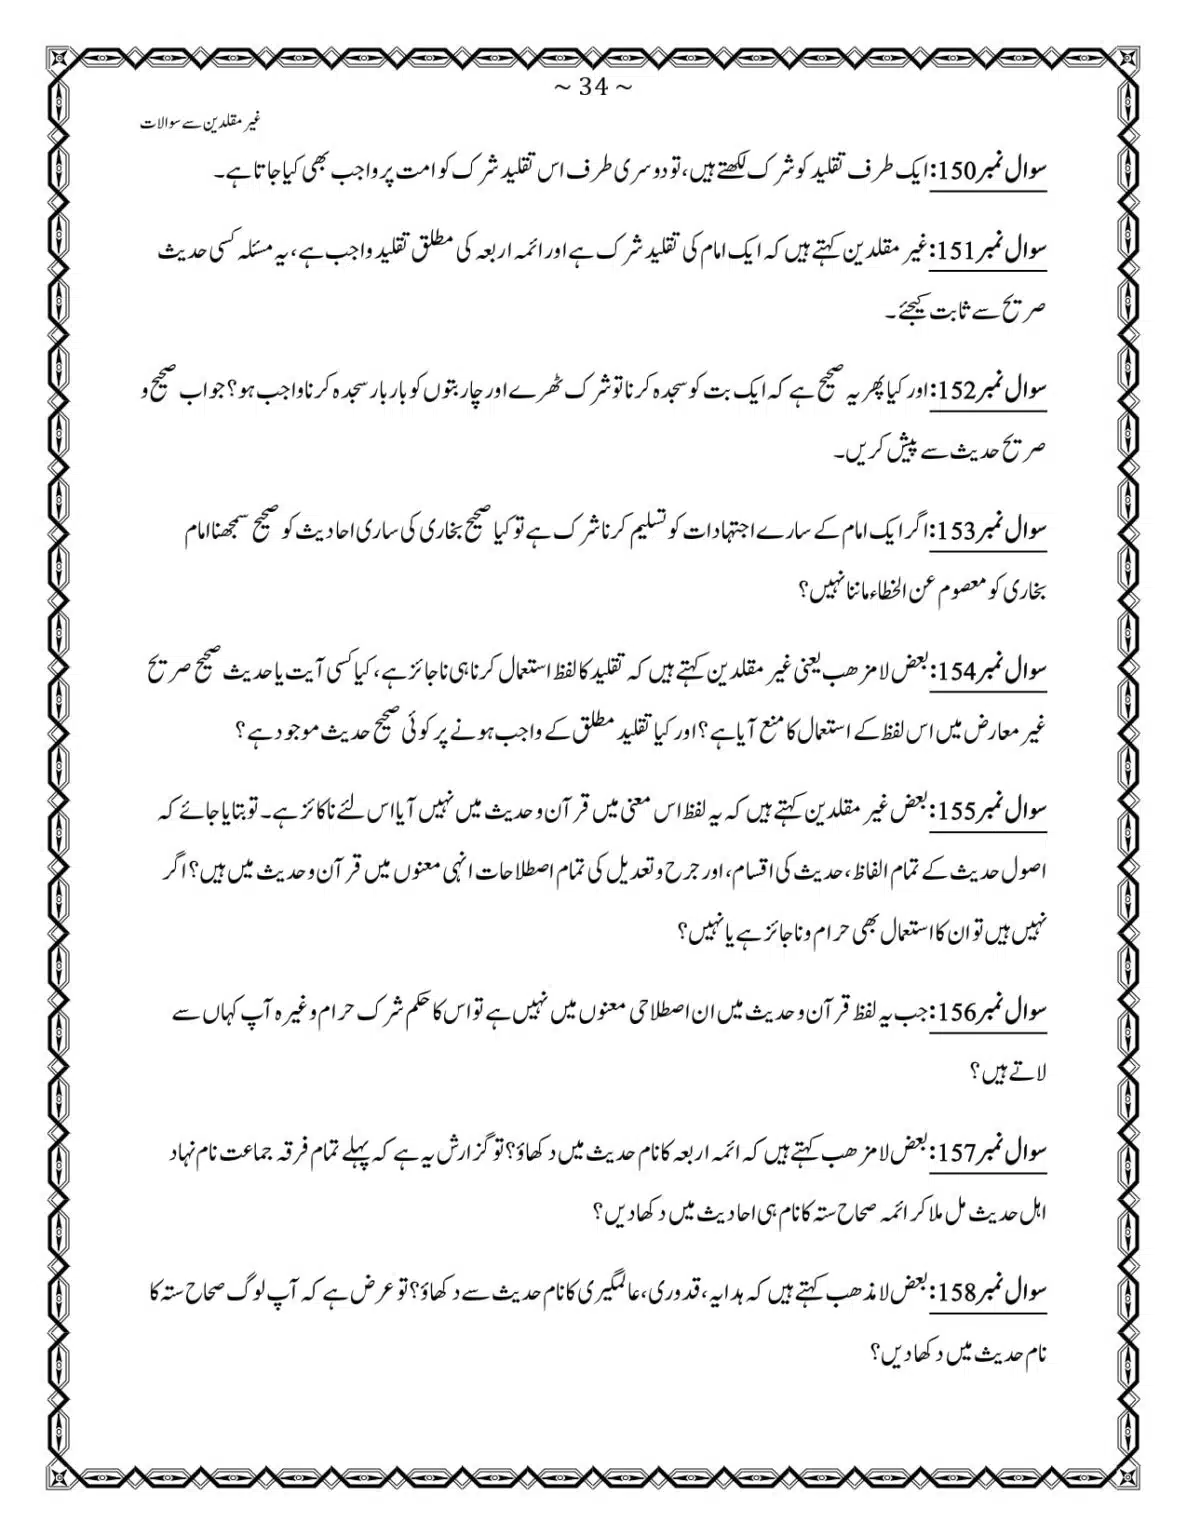 ~ 34 ~
غیر مقلدین سے سوالات
سوال نمبر150: ایک طرف تقلید کو شرک لکھتے ہیں، تو دوسری طرف اس تقلید شرک کو امت پر واجب بھی کیا جاتا ہے۔
سوال نمبر151: غیر مقلدین کہتے ہیں کہ ایک امام کی تقلید شرک ہے اور ائمہ اربعہ کی مطلق تقلید واجب ہے، یہ مسئلہ کسی حدیث
صریح سے ثابت کیجئے۔
سوال نمبر152: اور کیا پھر یہ صحیح ہے کہ ایک بت کو سجدہ کرنا تو شرک ٹھرے اور چار بتوں کو بار بار سجدہ کرنا واجب ہو؟ جواب صحیح و
صریح حدیث سے پیش کریں۔
سوال نمبر153: اگر ایک امام کے سارے اجتہادات کو تسلیم کرنا شرک ہے تو کیا صحیح بخاری کی ساری احادیث کو صحیح سمجھنا امام
بخاری کو معصوم عن الخطاء ماننا نہیں؟
سوال نمبر154: بعض لامزھب یعنی غیر مقلدین کہتے ہیں کہ تقلید کا لفظ استعمال کرنا ہی ناجائز ہے، کیا کسی آیت یا حدیث صحیح صریح
غیر معارض میں اس لفظ کے استعمال کا منع آیا ہے؟ اور کیا تقلید مطلق کے واجب ہونے پر کوئی صحیح حدیث موجود ہے؟
سوال نمبر155: بعض غیر مقلدین کہتے ہیں کہ یہ لفظ اس معنی میں قرآن و حدیث میں نہیں آیا اس لئے ناکائز ہے۔ تو بتایا جائے کہ
اصول حدیث کے تمام الفاظ، حدیث کی اقسام، اور جرح و تعدیل کی تمام اصطلاحات انہی معنوں میں قرآن و حدیث میں ہیں؟ اگر
نہیں ہیں تو ان کا استعمال بھی حرام و ناجائز ہے یا نہیں؟
سوال نمبر156: جب یہ لفظ قرآن و حدیث میں ان اصطلاحی معنوں میں نہیں ہے تو اس کا حکم شرک حرام وغیرہ آپ کہاں سے
لاتے ہیں؟
سوال نمبر157: بعض لامزھب کہتے ہیں کہ ائمہ اربعہ کا نام حدیث میں دکھاؤ؟ تو گزارش یہ ہے کہ پہلے تمام فرقہ جماعت نام نہاد
اہل حدیث مل ملا کر ائمہ صحاح ستہ کا نام ہی احادیث میں دکھادیں؟
سوال نمبر158: بعض لامذھب کہتے ہیں کہ ہدایہ، قدوری، عالمگیری کا نام حدیث سے دکھاؤ؟ تو عرض ہے کہ آپ لوگ صحاح ستہ کا
نام حدیث میں دکھادیں؟